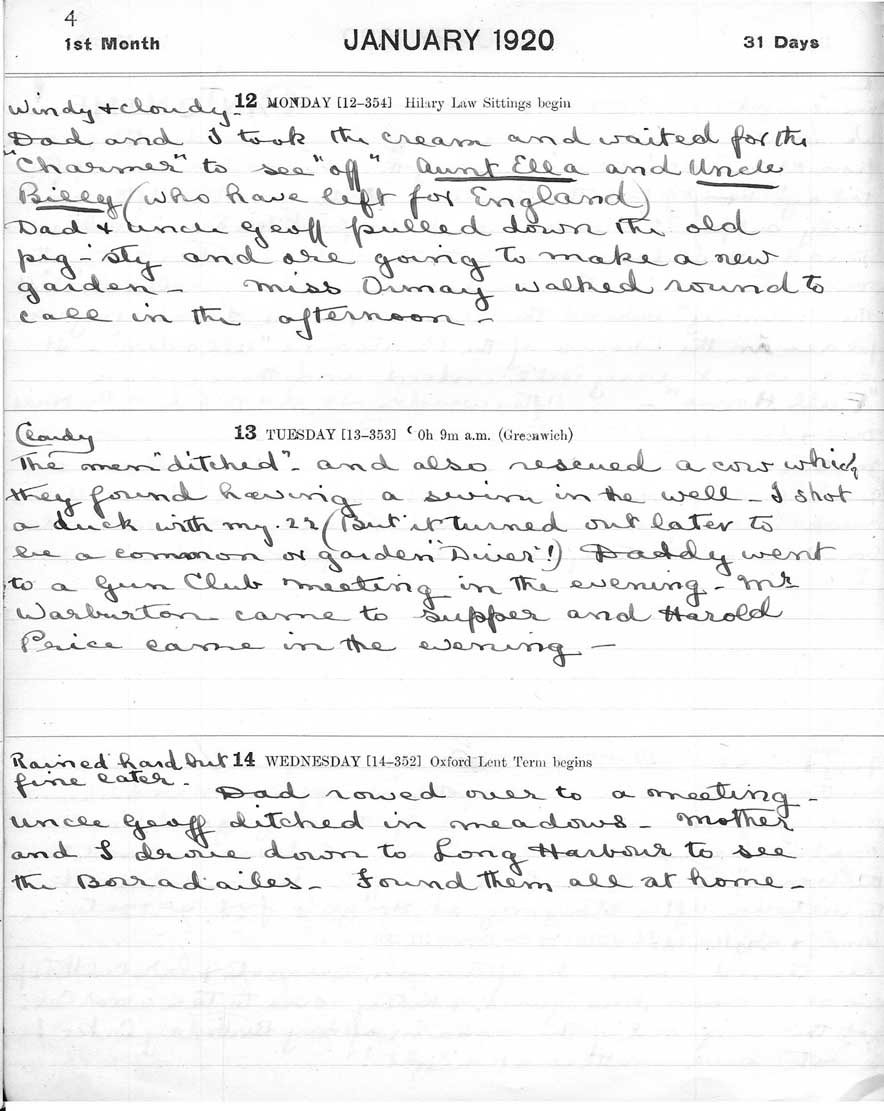 4
1st Month JANUARY 1920 31 Days
Windy & cloudy - 12 MONDAY [12–354] Hilary Law Sittings begin
Dad and I took the cream and waited for the
"Charmer" to see "off" Aunt Ella and Uncle
Billy (who have left for England)
Dad & Uncle Geoff pulled down the old
pig-sty and are going to make a new
garden - Miss Ormay walked round to
call in the afternoon -
Cloudy 13 TUESDAY [13–353] ☾ 0h 9m a.m. (Greenwich)
The men "ditched" - and also rescued a cow which
they found having a swim in the well - I shot
a duck with my .22 (But it turned out later to
be a common or garden "Diver"!) Daddy went
to a Gun Club meeting in the evening - Mr
Warburton came to supper and Harold
Price came in the evening -
Rained hard but 14 WEDNESDAY [14–352] Oxford Lent Term begins
fine later -
Dad rowed over to a meeting -
Uncle Geoff ditched in meadows - Mother
and I drove down to Long Harbour to see
the Borradailes - Found them all at home -